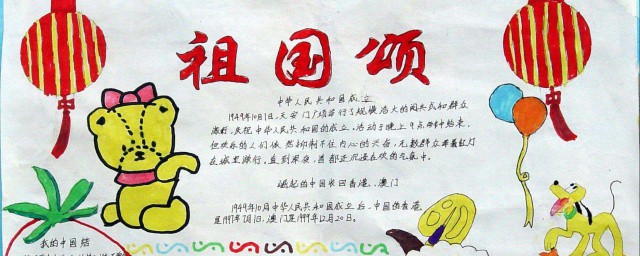 祖国颂
中华人民共和国成立
1949年10月1日,天安门广场举行了规模浩大的阅兵式和群众
游行,庆祝中华人民共和国的成立,活动于晚上9点25分结束,
但欢乐的人们依然抑制不住内心的兴奋,无数群众举着红灯
在城里游行,直到深夜,首都还沉浸在欢的气氛中。
崛起的中国收回香港、澳门
1949年10月中华人民共和国成立后,中国的香港
是1997年7月1日,澳门是1999年12月20日。
我的中国结